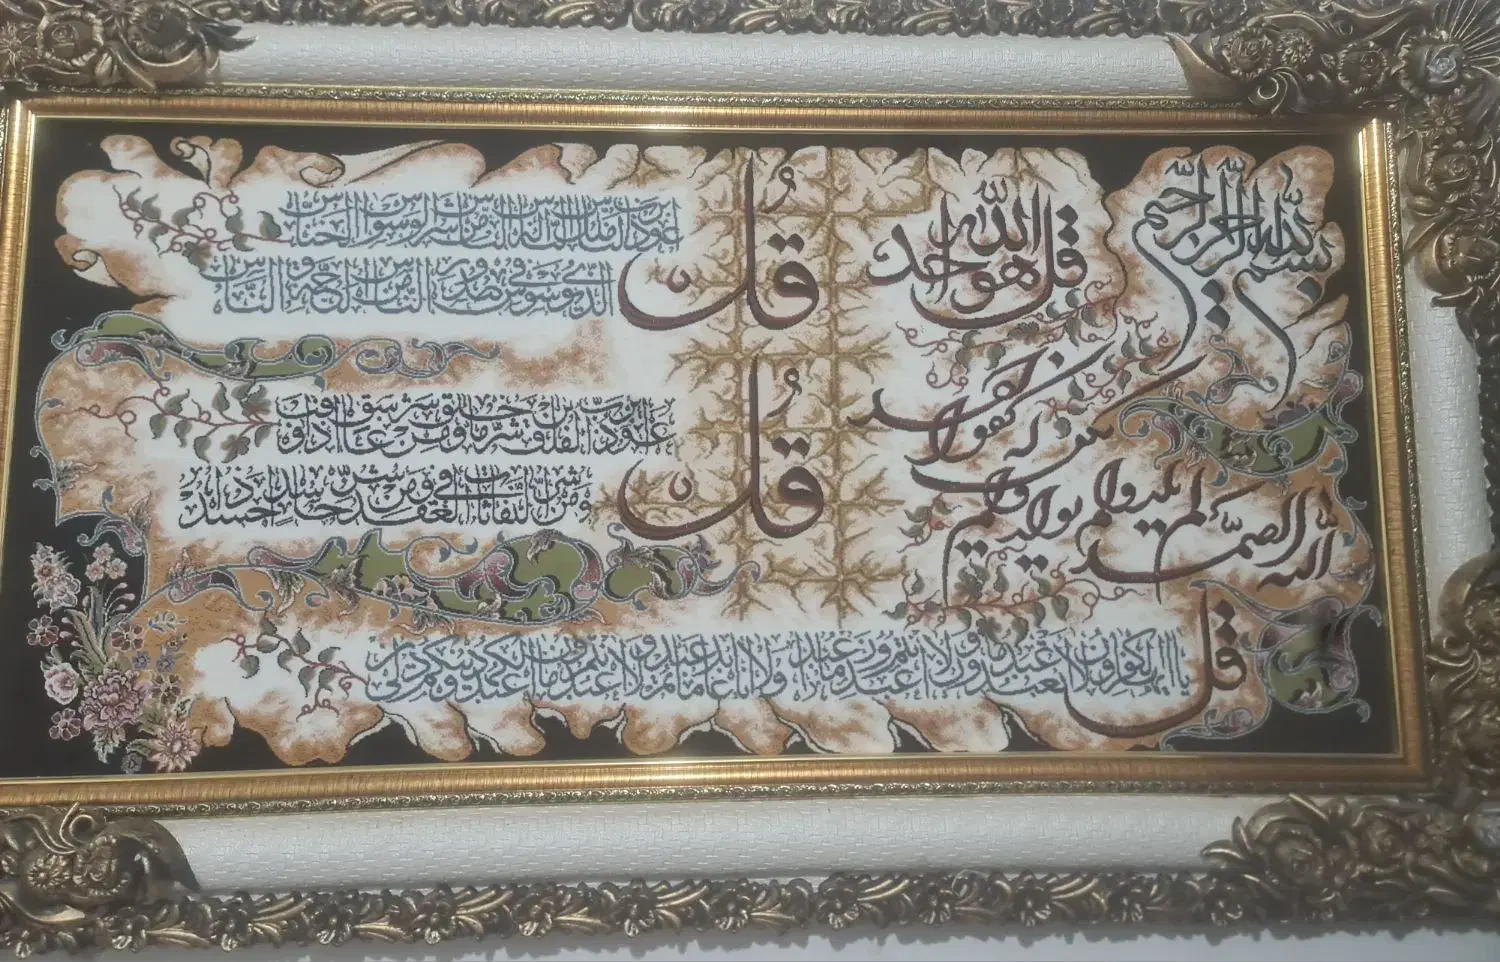 بسم الله الرحمن الرحيم
قل هو الله احد
الله الصمد لم يلد ولم يولد ولم
يكن له كفوا احد
قل اعوذ برب الناس ملك الناس اله الناس من شر الوسواس الخناس
الذي يوسوس في صدور الناس من الجنة و الناس
قل اعوذ برب الفلق من شر ما خلق و من شر غاسق اذا وقب
و من شر النفاثات في العقد و من شر حاسد اذا حسد
قل يا ايها الكافرون لا اعبد ما تعبدون و لا انتم عابدون ما اعبد و لا انا عابد ما عبدتم و لا انتم عابدون ما اعبد لكم دينكم ولي دين